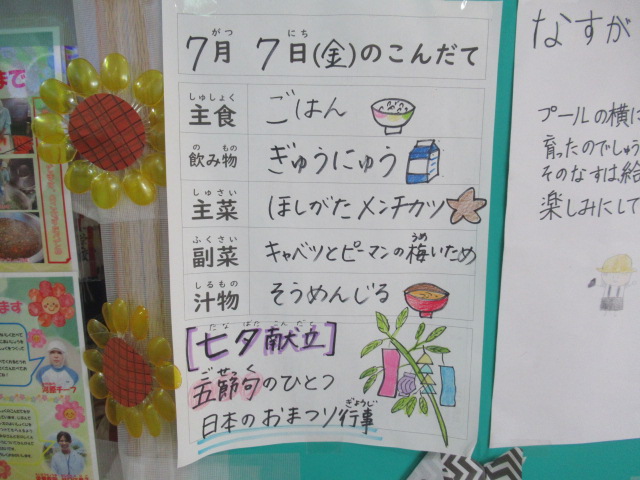 7月 7日(金)のこんだて
主食 ごはん
飲み物 ぎゅうにゅう
主菜 ほしがたメンチカツ
副菜 キャベツとピーマンの梅いため
汁物 そうめんじる
[七夕献立]
五節句のひとつ
日本のおまつり行事
なすが
プールの横に
育ったのでしゅう
そのなすは給
楽しみにして